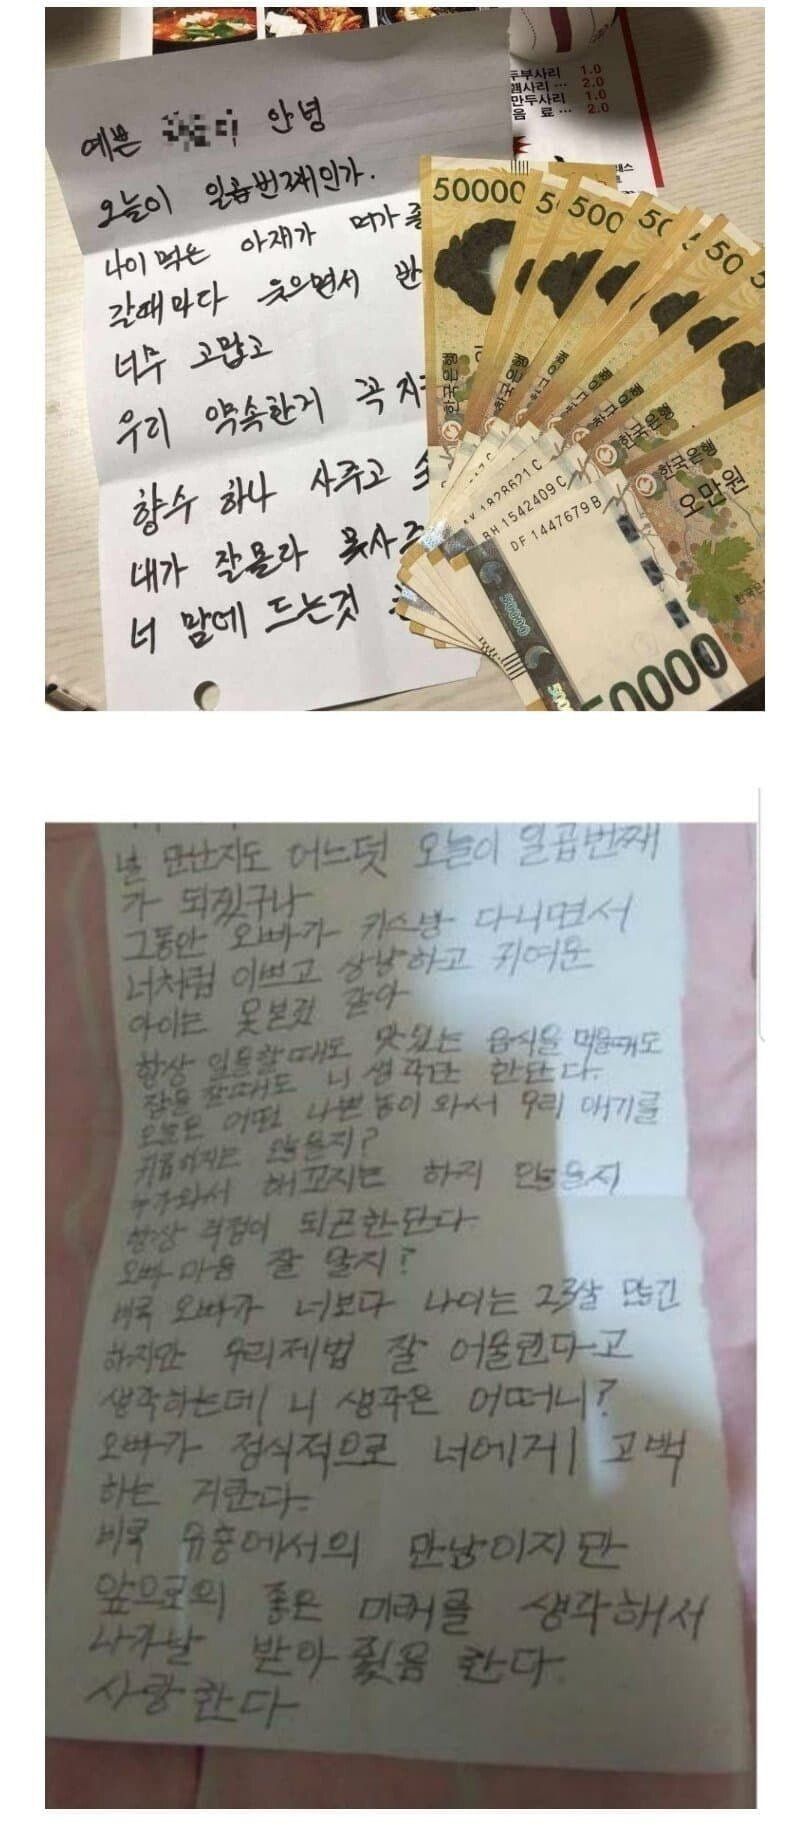 두부사리 1.0
햄사리 ... 2.0
만두사리 1.0
음 료 ... 2.0
예쁜 안녕
오늘이 일곱번째인가.
나이먹은 아재가 뭐가 좋
갈때마다 웃으면서 반
너무 고맙고
우리 약속한거 꼭 지
향수 하나 사주고
내가 잘몰라 못사주
너 맘에 드는것
50000
50
500
50
50
한국은행
한국은행
한국은행
한국은행
오만원
1828621 C
BH 1542409 C
DF 1447679 B
50000
50000
널 만난지도 어느덧 오늘이 일곱번째
가 되겠구나
그동안 오빠가 키스방 다니면서
너처럼 이쁘고 상냥하고 귀여운
아이는 못본것 같아
항상 일을할때도 맛있는 음식을 먹을때도
잠을 잘때도 니 생각만 한단다.
오늘은 어떤 나쁜놈이 와서 우리 애기를
괴롭히지는 않을지?
누가와서 해꼬지는 하지 않을지
항상 걱정이 되곤한단다.
오빠 마음 잘 알지?
비록 오빠가 너보다 나이는 23살 많긴
하지만 우리제법 잘 어울린다고
생각하는데 니 생각은 어떠니?
오빠가 정식적으로 너에게 고백
하는 거란다.
비록 유흥에서의 만남이지만
앞으로의 좋은 미래를 생각해서
나가날 받아줬음 한다.
사랑한다